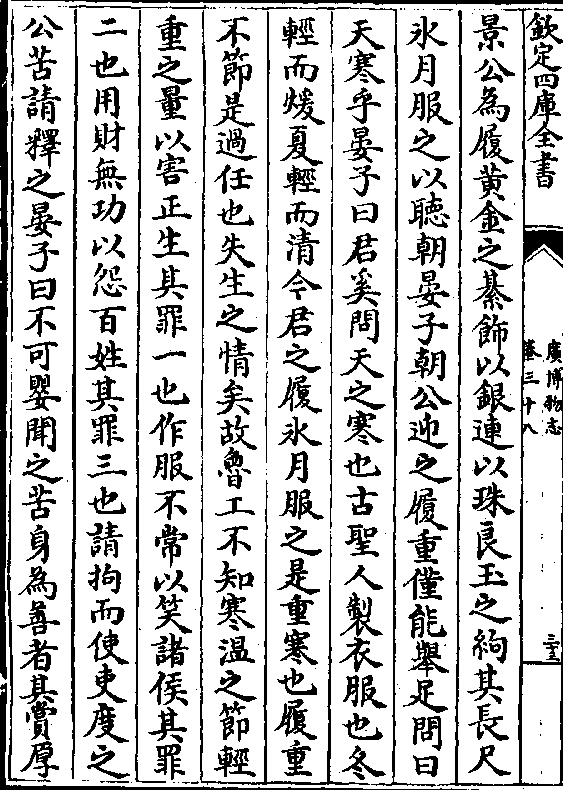 欽定四庫全書
廣博物志
卷三十八
三十三
景公為履黄金之綦飾以銀連以珠良玉之絇其長尺
氷月服之以聽朝晏子朝公迎之履重僅能舉足問曰
天寒乎晏子曰君奚問天之寒也古聖人製衣服也冬
輕而煖夏輕而清今君之履氷月服之是重寒也履重
不節是過任也失生之情矣故魯工不知寒温之節輕
重之量以害正生其罪一也作服不常以笑諸侯其罪
二也用財無功以怨百姓其罪三也請拘而使吏度之
公苦請釋之晏子曰不可嬰聞之苦身為善者其賞厚